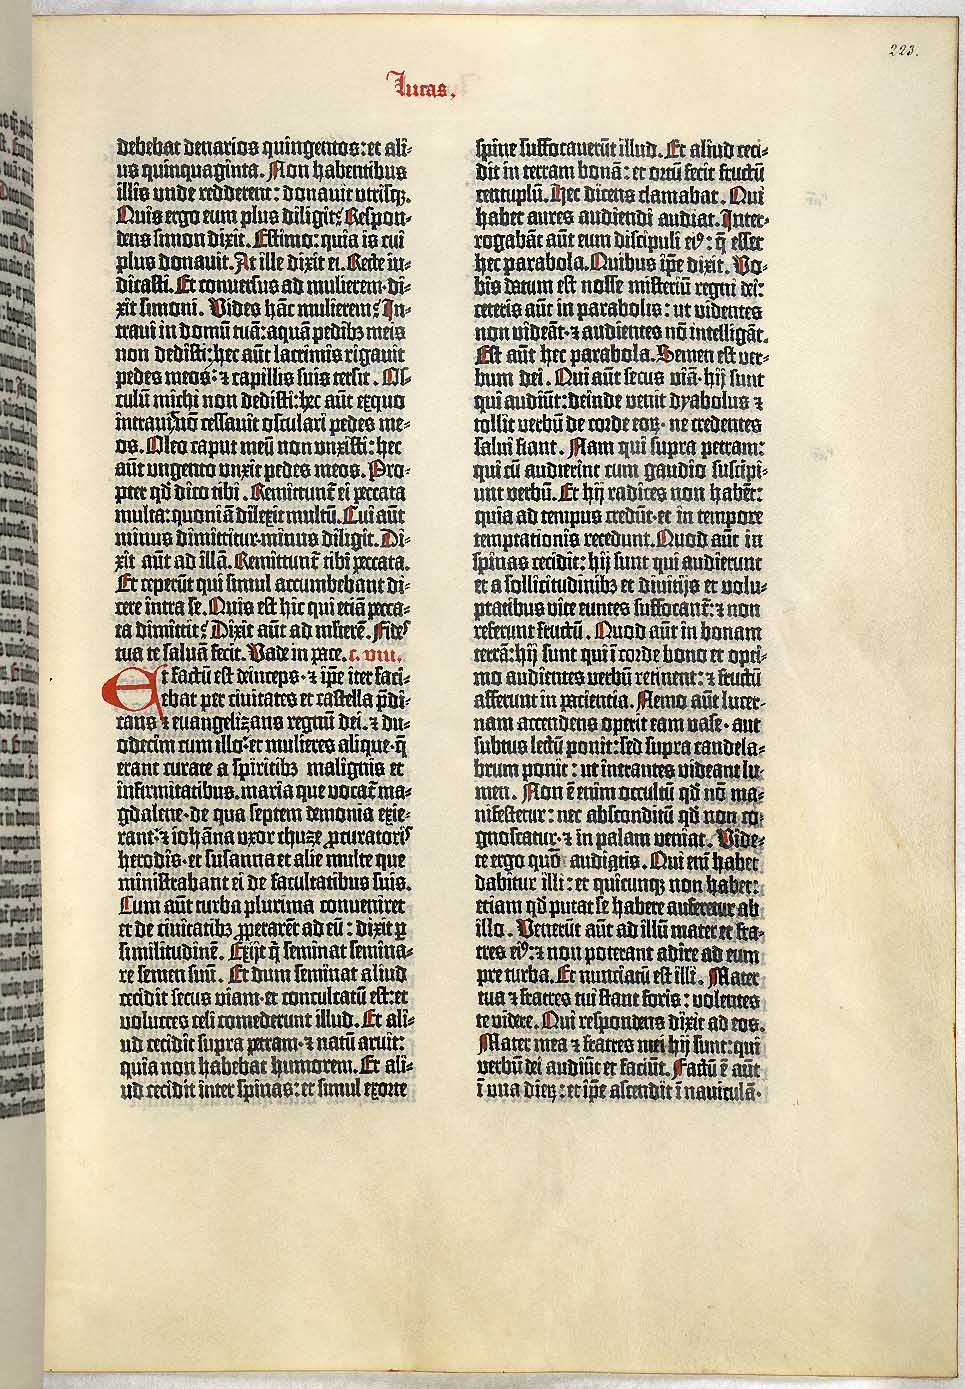 223.
Lucas.
debebat denarios quingentos: et ali-
us quinquaginta. Non habentibus
illis unde redderent: donauit utrisqꝫ.
Quis ergo eum plus diligit? Respon-
dens simon dixit. Estimo: quia is cui
plus donauit. At ille dixit ei. Recte iu-
dicasti. Et conuersus ad mulierem· di-
xit simoni. Vides hāc mulierem? In-
traui in domū tuā: aquā pedibꝫ meis
non dedisti: hec aūt lacrimis rigauit
pedes meos: ⁊ capillis suis tersit. Os-
culū michi non dedisti: hec aūt exquo
intrauit nō cessauit osculari pedes me-
os. Oleo caput meū non unxisti: hec
aūt ungento unxit pedes meos. Pro-
pter qd̄ dico tibi. Remittunt̄ ei peccata
multa: quoniā dilexit multū. Cui aūt
minus dimittitur· minus diligit. Di-
xit aūt ad illā. Remittunt̄ tibi peccata.
Et ceperūt qui simul accumbebant di-
cere intra se. Quis est hic qui etiā pecca-
ta dimittit? Dixit aūt ad mlierē. Fides
tua te saluā fecit. Vade in pace. c. viii.
Et factū est deinceps· ⁊ ip̄e iter faci-
ebat per ciuitates et castella p̄di-
cans ⁊ euangelizans regnū dei. ⁊ du-
odecim cum illo· et mulieres alique· q̄
erant curate a spiritibꝫ malignis et
infirmitatibus. maria que vocat̄ ma-
gdalene· de qua septem demonia exie-
rant: ⁊ iohāna uxor chuze ꝓcuratoris
herodis· et susanna et alie multe que
ministrabant ei de facultatibus suis.
Cum aūt turba plurima conueniret
et de ciuitatibꝫ ꝓperarēt ad eū: dixit ꝑ
similitudinē. Exijt q̄ seminat semina-
re semen suū. Et dum seminat aliud
cecidit secus viam· et conculcatū est: et
volucres celi comederunt illud. Et ali-
ud cecidit supra petram· ⁊ natū aruit:
quia non habebat humorem. Et ali-
ud cecidit inter spinas: et simul exorte
spine suffocauerūt illud. Et aliud ceci-
dit in terram bonā: et ortū fecit fructū
centuplū. Hec dicens clamabat. Qui
habet aures audiendi audiat. Inter-
rogabāt aūt eum discipuli eiꝰ: q̄ esset
hec parabola. Quibus ip̄e dixit. Vo-
bis datum est nosse misteriū regni dei:
ceteris aūt in parabolis: ut videntes
non videāt· ⁊ audientes nō intelligāt.
Est aūt hec parabola. Semen est ver-
bum dei. Qui aūt secus viā· hij sunt
qui audiūt: deinde venit dyabolus ⁊
tollit verbū de corde eoꝝ· ne credentes
salui fiant. Nam qui supra petram:
qui cū audierint cum gaudio suscipi-
unt verbū. Et hij radices non habēt:
quia ad tempus credūt· et in tempore
temptationis recedunt. Quod aūt in
spinas cecidit: hij sunt qui audierunt
et a sollicitudinibꝫ et diuitijs et volu-
ptatibus vite euntes suffocant̄: ⁊ non
referunt fructū. Quod aūt in bonam
terrā: hij sunt qui ī corde bono et opti-
mo audientes verbū retinent: ⁊ fructū
afferunt in pacientia. Nemo aūt lucer-
nam accendens operit eam vase· aut
subtus lectū ponit: sed supra candela-
brum ponit: ut intrantes videant lu-
men. Non ē enim occultū qd̄ nō ma-
nifestetur: nec absconditū qd̄ non co-
gnoscatur· ⁊ in palam veniat. Vide-
te ergo quō audiatis. Qui eni habet
dabitur illi: et quicunqꝫ non habet:
etiam qd̄ putat se habere auferetur ab
illo. Venerūt aūt ad illū mater et fra-
tres eiꝰ: ⁊ non poterant adire ad eum
pre turba. Et nunciatū est illi. Mater
tua ⁊ fratres tui stant foris: volentes
te videre. Qui respondens dixit ad eos.
Mater mea ⁊ fratres mei hij sunt: qui
verbū dei audiūt et faciūt. Factū ē aūt
ī una dieꝝ: et ip̄e ascendit ī nauiculā·